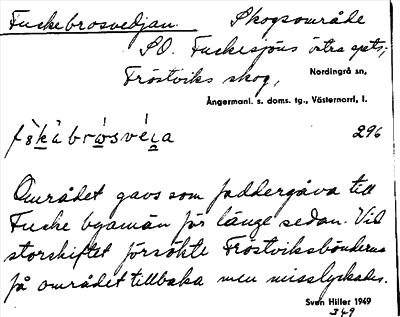 Fuskebrosvedjan. Skogsområde
SO. Fuskesjöns östra spets;
Fröstviks skog,
Nordingrå sn,
Ångermanl. s. doms. tg., Västernorrl. l.
296
Området gavs som faddergåva till
Fuske byamän för länge sedan. Vid
storskiftet försökte Fröstviksbönderna
få området tillbaka men misslyckades.
Sven Hiller 1949
349